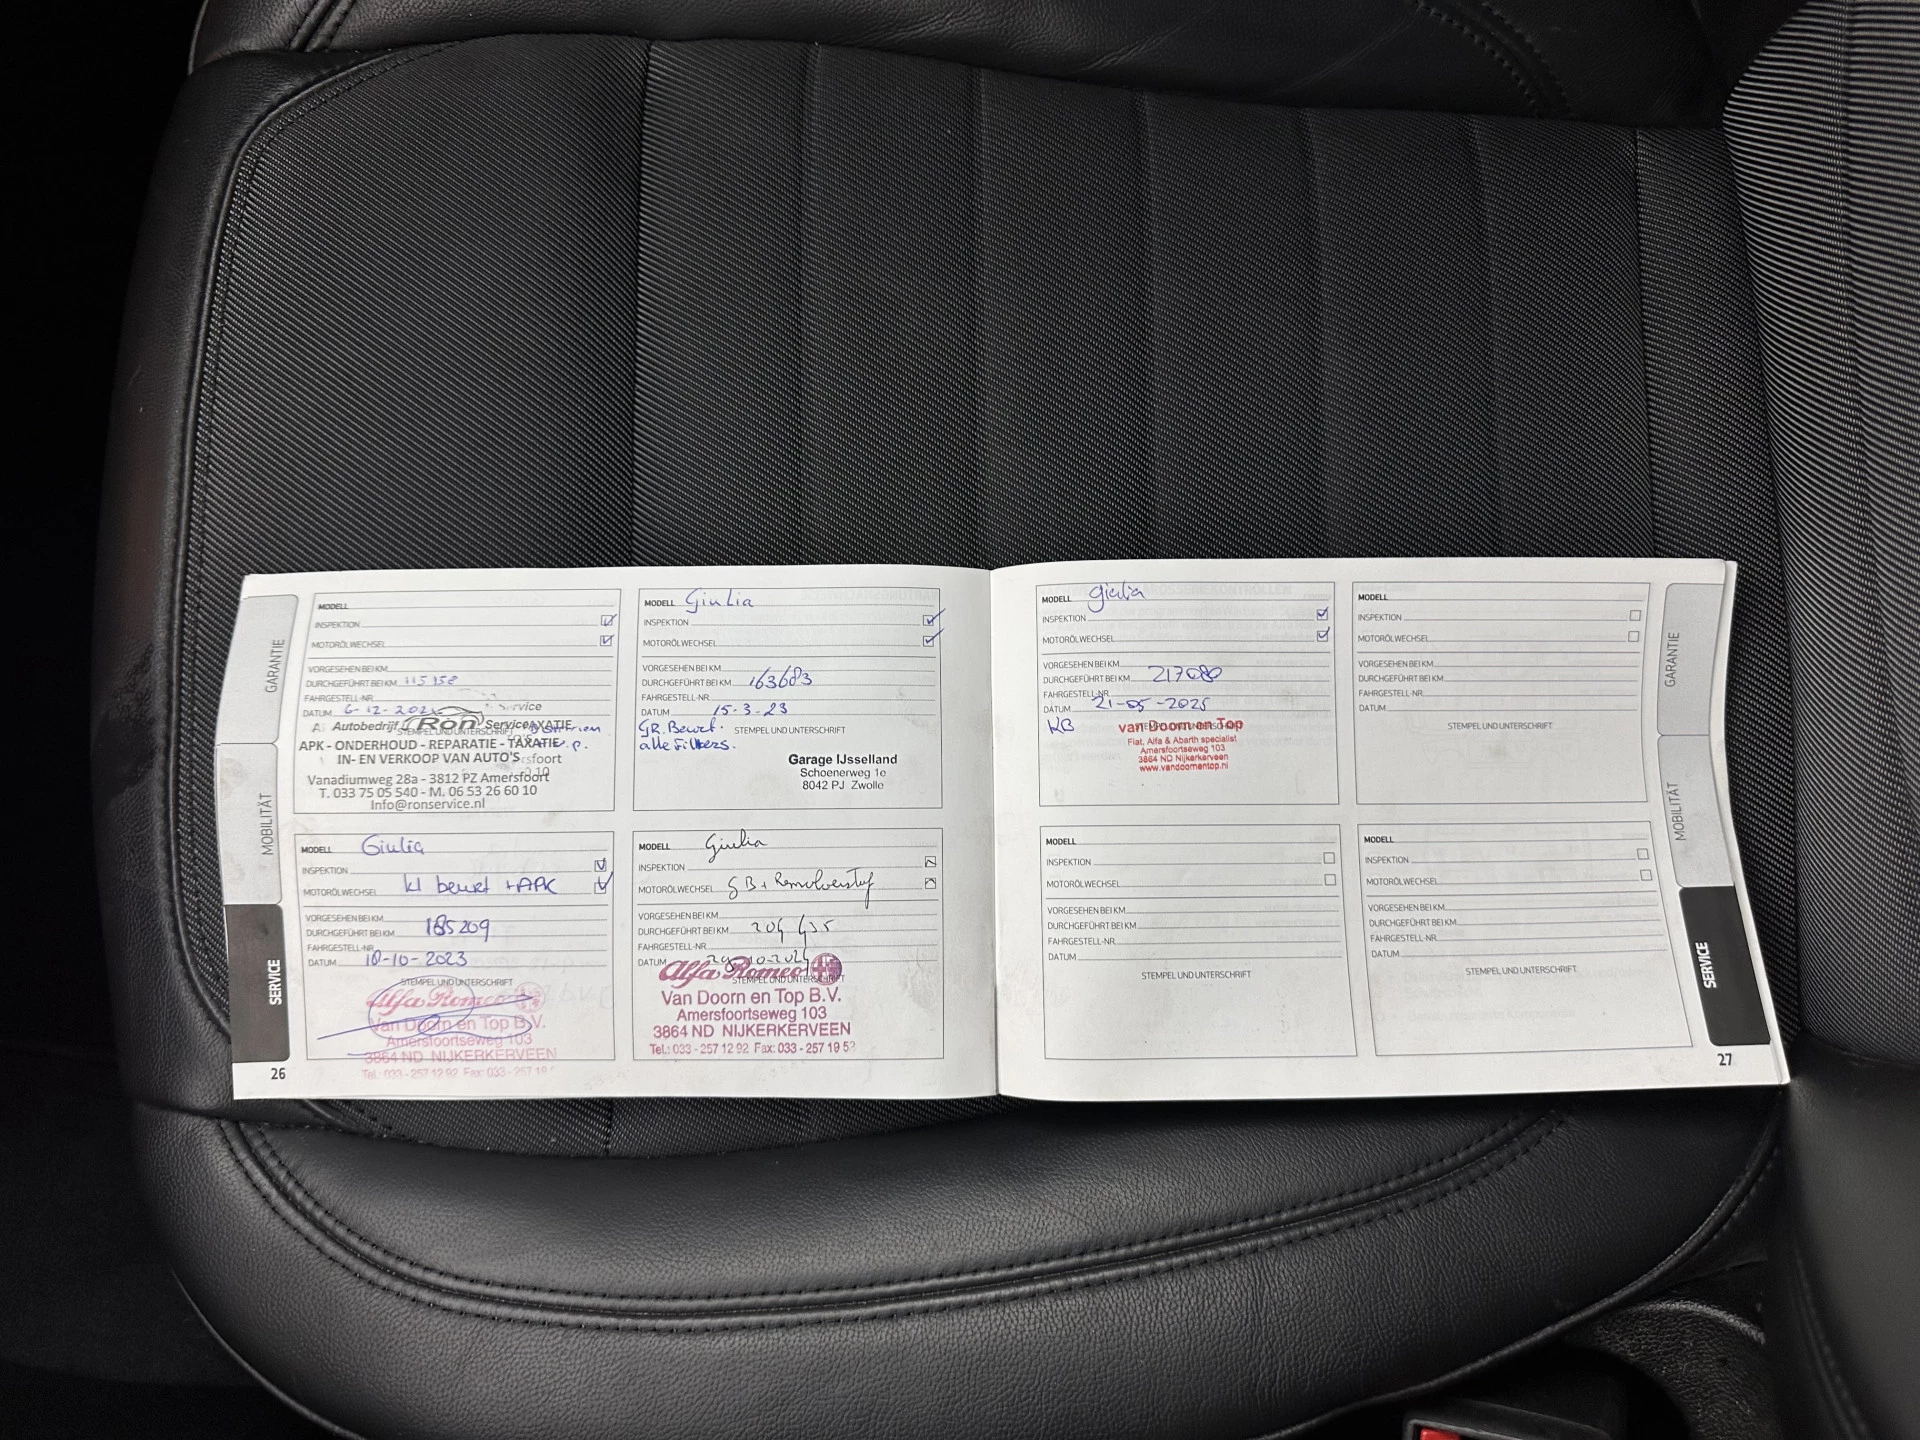 GARANTIE
MOBILITÄT
SERVICE
26
MODELL
INSPEKTION
MOTORÖLWECHSEL
VORGESEHEN BEI KM
DURCHGEFÜHRT BEI KM 115 158
FAHRGESTELL-NR.
DATUM 6-12-202
Autobedrijf Ron Service
APK - ONDERHOUD - REPARATIE - TAXATIE
IN- EN VERKOOP VAN AUTO'S
Vanadiumweg 28a - 3812 PZ Amersfoort
T. 033 75 05 540 - M. 06 53 26 60 10
Info@ronservice.nl
MODELL Giulia
INSPEKTION
MOTORÖLWECHSEL
VORGESEHEN BEI KM
DURCHGEFÜHRT BEI KM 163683
FAHRGESTELL-NR.
DATUM 15-3-23
GR. Beurt. STEMPEL UND UNTERSCHRIFT
alle Filters.
Garage IJsselland
Schoenerweg 1e
8042 PJ Zwolle
MODELL Giulia
INSPEKTION
MOTORÖLWECHSEL kl beurt + APK
VORGESEHEN BEI KM
DURCHGEFÜHRT BEI KM 185209
FAHRGESTELL-NR.
DATUM 10-10-2023
STEMPEL UND UNTERSCHRIFT
Alfa Romeo
Van Doorn en Top B.V.
Amersfoortseweg 103
3864 ND NIJKERKERVEEN
Tel.: 033 - 257 12 92 Fax: 033 - 257 19
MODELL Giulia
INSPEKTION
MOTORÖLWECHSEL GB + Remvloeistof
VORGESEHEN BEI KM
DURCHGEFÜHRT BEI KM 204 435
FAHRGESTELL-NR.
DATUM 29-10-2024
Alfa Romeo
STEMPEL UND UNTERSCHRIFT
Van Doorn en Top B.V.
Amersfoortseweg 103
3864 ND NIJKERKERVEEN
Tel.: 033 - 257 12 92 Fax: 033 - 257 19 52
MODELL Giulia
INSPEKTION
MOTORÖLWECHSEL
VORGESEHEN BEI KM
DURCHGEFÜHRT BEI KM 217080
FAHRGESTELL-NR.
DATUM 21-05-2025
KB
STEMPEL UND UNTERSCHRIFT
van Doorn en Top
Fiat, Alfa & Abarth specialist
Amersfoortseweg 103
3864 ND Nijkerkerveen
www.vandoornentop.nl
MODELL
INSPEKTION
MOTORÖLWECHSEL
VORGESEHEN BEI KM
DURCHGEFÜHRT BEI KM
FAHRGESTELL-NR.
DATUM
STEMPEL UND UNTERSCHRIFT
MODELL
INSPEKTION
MOTORÖLWECHSEL
VORGESEHEN BEI KM
DURCHGEFÜHRT BEI KM
FAHRGESTELL-NR.
DATUM
STEMPEL UND UNTERSCHRIFT
MODELL
INSPEKTION
MOTORÖLWECHSEL
VORGESEHEN BEI KM
DURCHGEFÜHRT BEI KM
FAHRGESTELL-NR.
DATUM
STEMPEL UND UNTERSCHRIFT
GARANTIE
MOBILITÄT
SERVICE
27